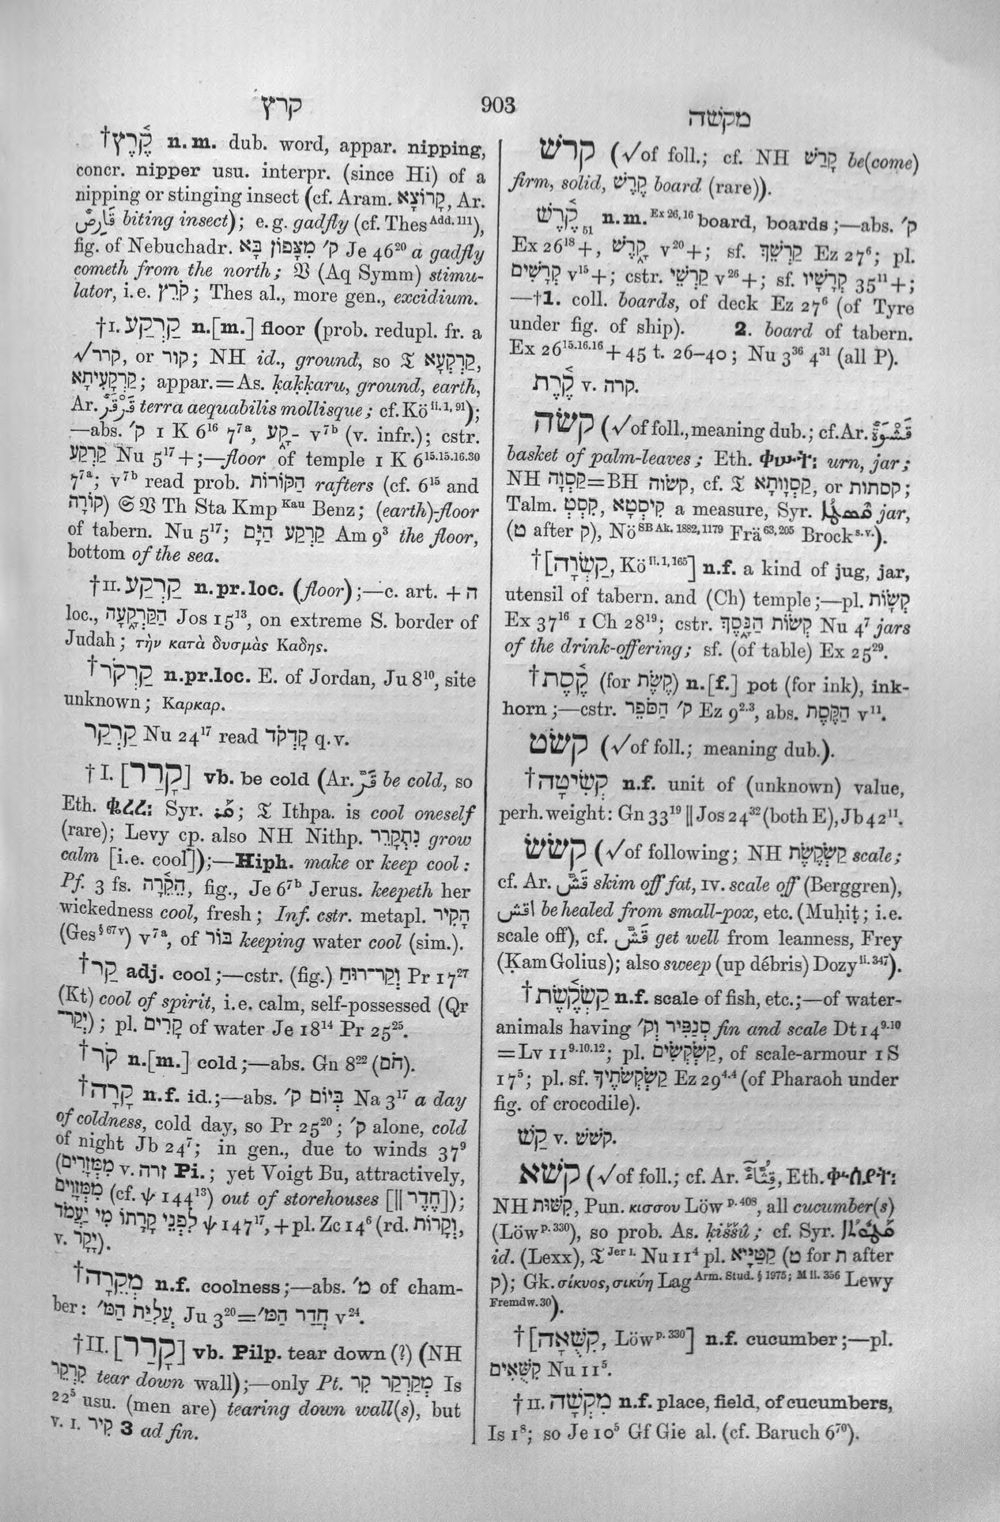 קרץ
903
מקשה
†קֶ֫רֶץ n.m. dub. word, appar. nipping,
concr. nipper usu. interpr. (since Hi) of a
nipping or stinging insect (cf. Aram. קָרוֹצָא, Ar.
قَارِصٌ biting insect); e.g. gadfly (cf. Thes Add. 111),
fig. of Nebuchadr. ק׳ מִצָּפוֹן בָּא Je 46²⁰ a gadfly
cometh from the north; 𝔙 (Aq Symm) stimu-
lator, i.e. קֹרֵץ; Thes al., more gen., excidium.
†I. קַרְקַע n.[m.] floor (prob. redupl. fr. a
√קרר, or קור; NH id., ground, so 𝔗 קַרְקְעָא,
קַרְקְעִיתָא; appar.=As. ḳaḳḳaru, ground, earth,
Ar. قَرْقَرٌ terra aequabilis mollisque; cf. Kö ii. 1, 91);
—abs. ק׳ 1 K 6¹⁶ 7⁷ᵃ, ־קָע v⁷ᵇ (v. infr.); cstr.
קַרְקַע Nu 5¹⁷+;—floor of temple 1 K 6¹⁵·¹⁵·¹⁶·³⁰
7⁷ᵃ; v⁷ᵇ read prob. הַקּוֹרוֹת rafters (cf. 6¹⁵ and
קוֹרָה) 𝔖 𝔙 Th Sta Kmp Kau Benz; (earth)-floor
of tabern. Nu 5¹⁷; קַרְקַע הַיָּם Am 9³ the floor,
bottom of the sea.
†II. קַרְקַע n.pr.loc. (floor);—c. art. + ה
loc., הַקַּרְקָ֫עָה Jos 15¹³, on extreme S. border of
Judah; τὴν κατὰ δυσμὰς Καδης.
†קַרְקֹר n.pr.loc. E. of Jordan, Ju 8¹⁰, site
unknown; Καρκαρ.
קַרְקַר Nu 24¹⁷ read קָדְקֹד q.v.
†I. [קָרַר] vb. be cold (Ar. قَرَّ be cold, so
Eth. ቈረረ: Syr. ܩܰܪ; 𝔗 Ithpa. is cool oneself
(rare); Levy cp. also NH Nithp. נִתְקָרֵר grow
calm [i.e. cool]);—Hiph. make or keep cool:
Pf. 3 fs. הֵקֵ֫רָה, fig., Je 6⁷ᵇ Jerus. keepeth her
wickedness cool, fresh; Inf. cstr. metapl. הָקִיר
(Ges §67v) v⁷ᵃ, of בּוֹר keeping water cool (sim.).
†קַר adj. cool;—cstr. (fig.) וְקַר־רוּחַ Pr 17²⁷
(Kt) cool of spirit, i.e. calm, self-possessed (Qr
יְקַר־); pl. קָרִים of water Je 18¹⁴ Pr 25²⁵.
†קֹר n.[m.] cold;—abs. Gn 8²² (חֹם).
†קָרָה n.f. id.;—abs. בְּיוֹם ק׳ Na 3¹⁷ a day
of coldness, cold day, so Pr 25²⁰; ק׳ alone, cold
of night Jb 24⁷; in gen., due to winds 37⁹
(מְמָזְרִים v. זרה Pi.; yet Voigt Bu, attractively,
מְמְּזָוִים (cf. ψ 144¹³) out of storehouses [‖ חֶדֶר]);
לִפְנֵי קָרָתוֹ מִי יַעֲמֹד ψ 147¹⁷,+pl. Zc 14⁶ (rd. וְקָרוֹת,
v. יָקָר).
†מְקֵרָה n.f. coolness;—abs. מ׳ of cham-
ber: עֲלִיַּת הַמּ׳ Ju 3²⁰=חֲדַר הַמּ׳ v²⁴.
†II. [קָרַר] vb. Pilp. tear down (?) (NH
קִרְקֵר tear down wall);—only Pt. מְקַרְקַר קִר Is
22⁵ usu. (men are) tearing down wall(s), but
v. I. קִיר 3 ad fin.
קרשׁ (√of foll.; cf. NH קָרַשׁ be(come)
firm, solid, קֶרֶשׁ board (rare)).
קֶ֫רֶשׁ 51 n.m. Ex 26, 16 board, boards;—abs. ק׳
Ex 26¹⁸+, קָ֑רֶשׁ v²⁰+; sf. קַרְשֵׁךְ Ez 27⁶; pl.
קְרָשִׁים v¹⁵+; cstr. קַרְשֵׁי v²⁶+; sf. קְרָשָׁיו 35¹¹+;
—†1. coll. boards, of deck Ez 27⁶ (of Tyre
under fig. of ship). 2. board of tabern.
Ex 26¹⁵·¹⁶·¹⁶+45 t. 26–40; Nu 3³⁶ 4³¹ (all P).
קֶ֫רֶת v. קרה.
קשׂה (√of foll., meaning dub.; cf. Ar. قَشْوَةٌ
basket of palm-leaves; Eth. ቀሡት: urn, jar;
NH קַסְוָה=BH קשׂוה, cf. 𝔗 קַסְוָותָא, or קסתות;
Talm. קִסֵּט, קִיסְטָא a measure, Syr. ܩܶܣܛܳܐ jar,
(ט after ק), Nö SB Ak. 1882, 1179 Frä 63, 205 Brock s.v.).
†[קַשְׂוָה, Kö ii. 1, 165] n.f. a kind of jug, jar,
utensil of tabern. and (Ch) temple;—pl. קְשָׂוֹת
Ex 37¹⁶ 1 Ch 28¹⁹; cstr. קְשׂוֹת הַנָּ֑סֶךְ Nu 4⁷ jars
of the drink-offering; sf. (of table) Ex 25²⁹.
†קֶ֫סֶת (for קֶשֶׂת) n.[f.] pot (for ink), ink-
horn;—cstr. ק׳ הַסֹּפֵר Ez 9²·³, abs. הַקָּ֑סֶת v¹¹.
קשׂט (√of foll.; meaning dub.).
†קְשִׂיטָה n.f. unit of (unknown) value,
perh. weight: Gn 33¹⁹ ‖ Jos 24³² (both E), Jb 42¹¹.
קשׂשׂ (√of following; NH קַשְׂקֶשֶׂת scale;
cf. Ar. قَشَّ skim off fat, IV. scale off (Berggren),
اقش be healed from small-pox, etc. (Muḥiṭ; i.e.
scale off), cf. قَشَّ get well from leanness, Frey
(Ḳam Golius); also sweep (up débris) Dozy ii. 347).
†קַשְׂקֶ֫שֶׂת n.f. scale of fish, etc.;—of water-
animals having סְנַפִּיר וְק׳ fin and scale Dt 14⁹·¹⁰
=Lv 11⁹·¹⁰·¹²; pl. קַשְׂקַשִּׂים, of scale-armour 1 S
17⁵; pl. sf. קַשְׂקְשֹׂתֶיךָ Ez 29⁴·⁴ (of Pharaoh under
fig. of crocodile).
קַשׁ v. קשׁשׁ.
קשׁא (√of foll.; cf. Ar. قِثَّاءٌ, Eth. ቍስያት:
NH קִשּׁוּת, Pun. κισσου Löw p. 408, all cucumber(s)
(Löw p. 330), so prob. As. ḳiššû; cf. Syr. ܩܰܛܽܘܬܳܐ
id. (Lexx), 𝔗 Jer 1. Nu 11⁴ pl. קָטַיָּיא (ט for ת after
ק); Gk. σίκυος, σικύη Lag Arm. Stud. § 1975; M ii. 356 Lewy
Fremdw. 30).
†[קִשֻּׁאָה, Löw p. 330] n.f. cucumber;—pl.
קִשֻּׁאִים Nu 11⁵.
†II. מִקְשָׁה n.f. place, field, of cucumbers,
Is 1⁸; so Je 10⁵ Gf Gie al. (cf. Baruch 6⁷⁰).